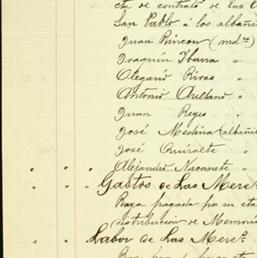 cta de contrato de las C
San Pablo á los albañi
Juan Rincon (mdro)
Joaquin Ibarra "
Olegario Rivas "
Antonio Arellano "
Juan Reyes "
José Medina albañi
José "
Alejandro Navarete "
" " " Gastos de Las Merc
Raya pagada por su cta
distribucion de Memoria
" " " Labor de Las Merc
Raya